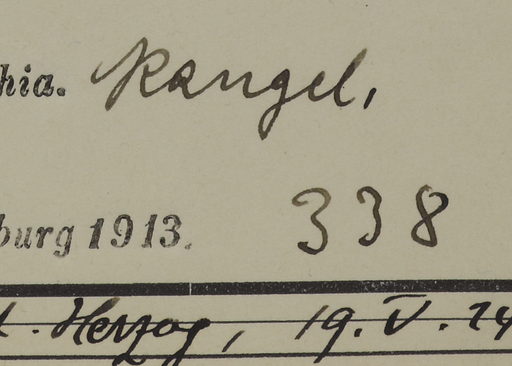 hia. Rangel,
burg 1913. 338
t. Herzog, 19. V. 24